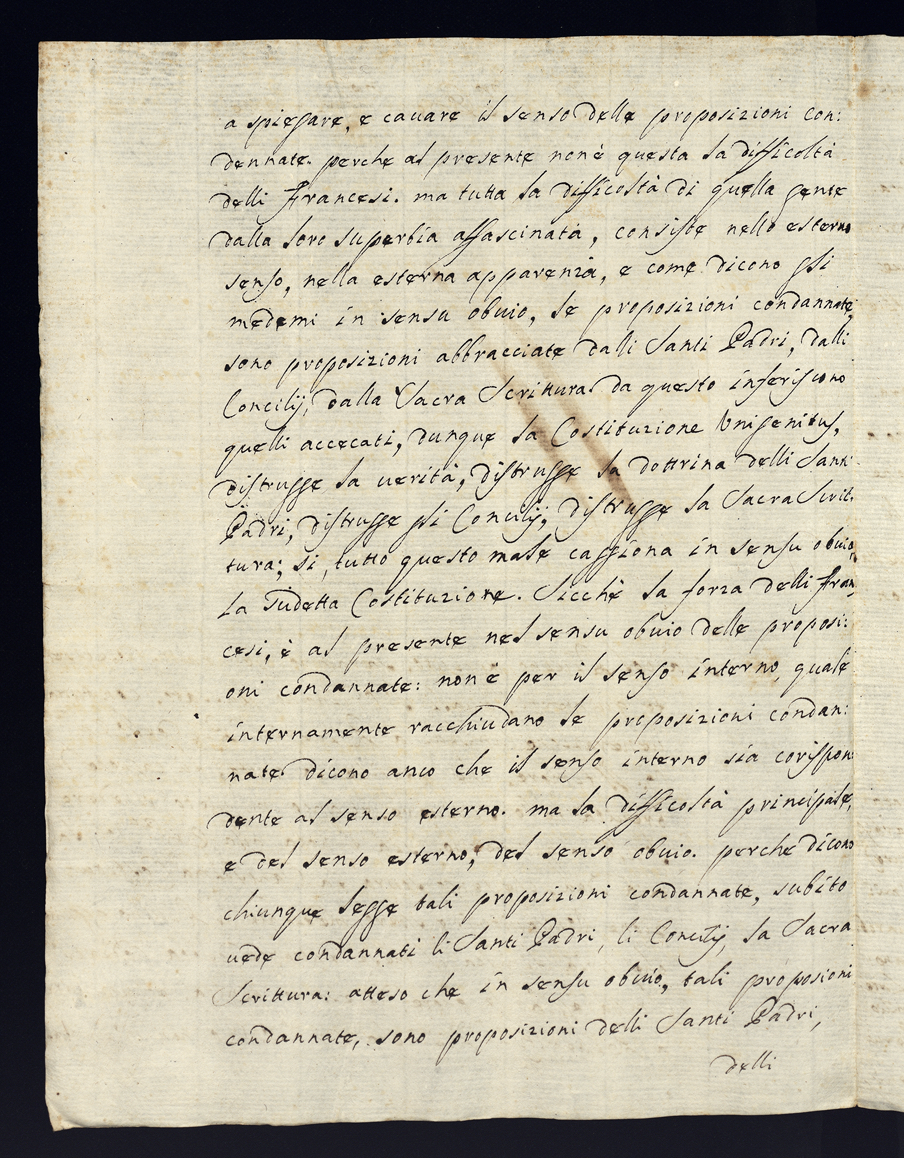 a spiegare, e cauare il senso delle proposizioni con:
dennate. perche al presente non è questa la difficoltà
delli Francesi. ma tutta la difficoltà di quella gente
dalla loro superbia affascinata, consiste nello esterno
senso, nella esterna apparenza, e come dicono gli
medemi in sensu obuio, le proposizioni condannate,
sono proposizioni abbracciate dalli Santi Padri, dalli
Concilij, dalla Sacra Scrittura da questo inferiscono
quelli accecati, dunque la Costituzione Unigenitus,
distrugge la uerità, distrugge la dottrina delli Santi
Padri, distrugge gli Concilij, distrugge la Sacra Scrit:
tura; si, tutto questo male caggiona in sensu obuio,
la sudetta Costituzione. Sicchè la forza delli Fran:
cesi, è al presente nel sensu obuio delle proposi:
oni condannate: non è per il senso interno, quale
internamente racchiudano le proposizioni condan:
nate dicono anco che il senso interno sia corispon
dente al senso esterno. ma la difficoltà principale,
e del senso esterno, del senso obuio. perche dicono
chiunque legge tali proposizioni condannate, subito
uede condannati li Santi Padri, li Concilij, la Sacra
Scrittura: atteso che in sensu obuio, tali proposioni
condannate, sono proposizioni delli Santi Padri,
delli